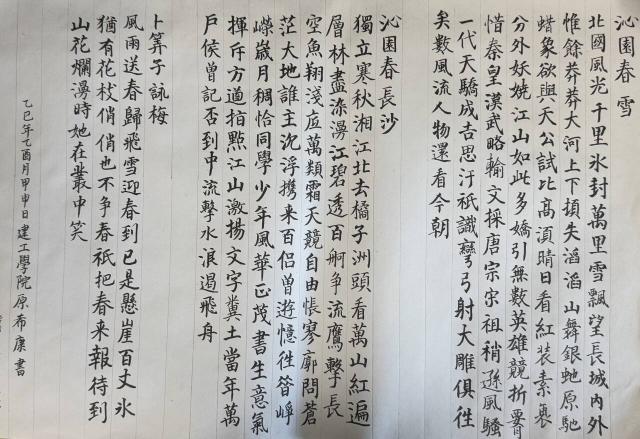 沁園春 雪
北國風光千里冰封萬里雪飄望長城内外
惟餘莽莽大河上下頓失滔滔山舞銀虵原馳
蜡象欲與天公試比高湏晴日看紅裝素裹
分外妖嬈江山如此多嬌引無數英雄競折要
惜秦皇漢武略輸文採唐宗宋祖稍遜風騷
一代天驕成吉思汗祇識彎弓射大雕俱徃
矣數風流人物還看今朝
沁園春長沙
獨立寒秋湘江北去橘子洲頭看萬山紅遍
層林盡染漫江碧透百舸争流鷹擊長
空魚翔淺底萬類霜天競自由悵寥廓問蒼
茫大地誰主沈浮携来百侣曾遊憶徃昝崢
嶸嵗月稠恰同學少年風華正茂書生意氣
揮斥方遒指點江山激揚文字糞土當年萬
戶侯曾記否到中流擊水浪遏飛舟
卜筭子詠梅
風雨送春歸飛雪迎春到已是懸崖百丈冰
猶有花枝俏俏也不争春祇把春来報待到
山花爛漫時她在叢中笑
乙巳年乙酉月甲申日建工學院原希康書